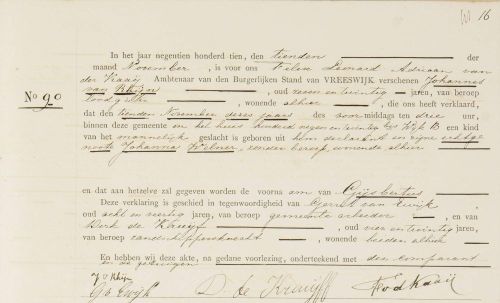 16
In het jaar negentien honderd tien, den tienden der
maand November, is voor ons Felix Leonard Adriaan van
der Kaaij Ambtenaar van den Burgerlijken Stand van VREESWIJK verschenen Johannes
No 90
van Rhijn, oud zeven en twintig jaren, van beroep
loodgieter, wonende alhier, die ons heeft verklaard,
dat den tienden November dezes jaars des voormiddags ten drie ure,
binnen deze gemeente en het huis honderd negen en twintig Wijk B een kind
van het mannelijke geslacht is geboren uit hem declarant en zijne echtge
noote Johanna Welner, zonder beroep, wonende alhier
en dat aan hetzelve zal gegeven worden de voorna am van Gijsbertus
Deze verklaring is geschied in tegenwoordigheid van Gerrit van Ewijk
oud acht en veertig jaren, van beroep gemeente arbeider, en van
Dirk de Kruijff, oud vier en twintig jaren,
van beroep wonende beiden alhier
En hebben wij deze akte, na gedane voorlezing, onderteekend met den comparant
en de getuigen
J v Rhijn
G. v. Ewijk
D. de Kruijff
F v d Kaaij